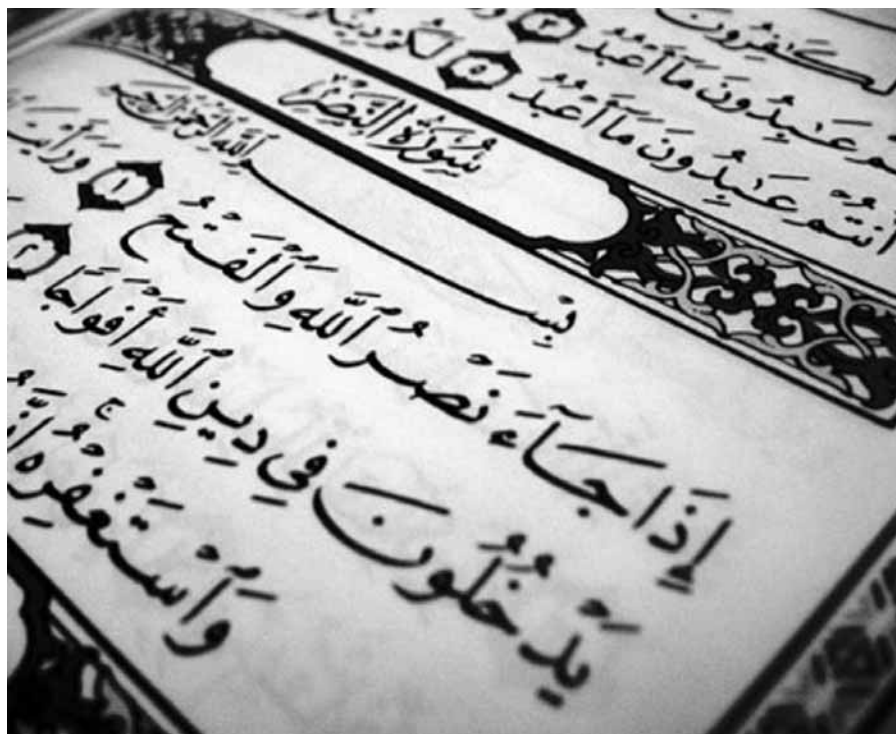 لكفرون
م عبدون ما أعبد ٣
أنتم عبدون ما أعبد ٥ لكم دين
سُورَةُ النَّصْرِ
بِسْمِ ٱللَّهِ ٱلرَّحْمَٰنِ ٱلرَّحِيمِ
إِذَا جَآءَ نَصْرُ ٱللَّهِ وَٱلْفَتْحُ ١ وَرَأَيْتَ
يَدْخُلُونَ فِي دِينِ ٱللَّهِ أَفْوَاجًا ٢
وَٱسْتَغْفِرْهُ